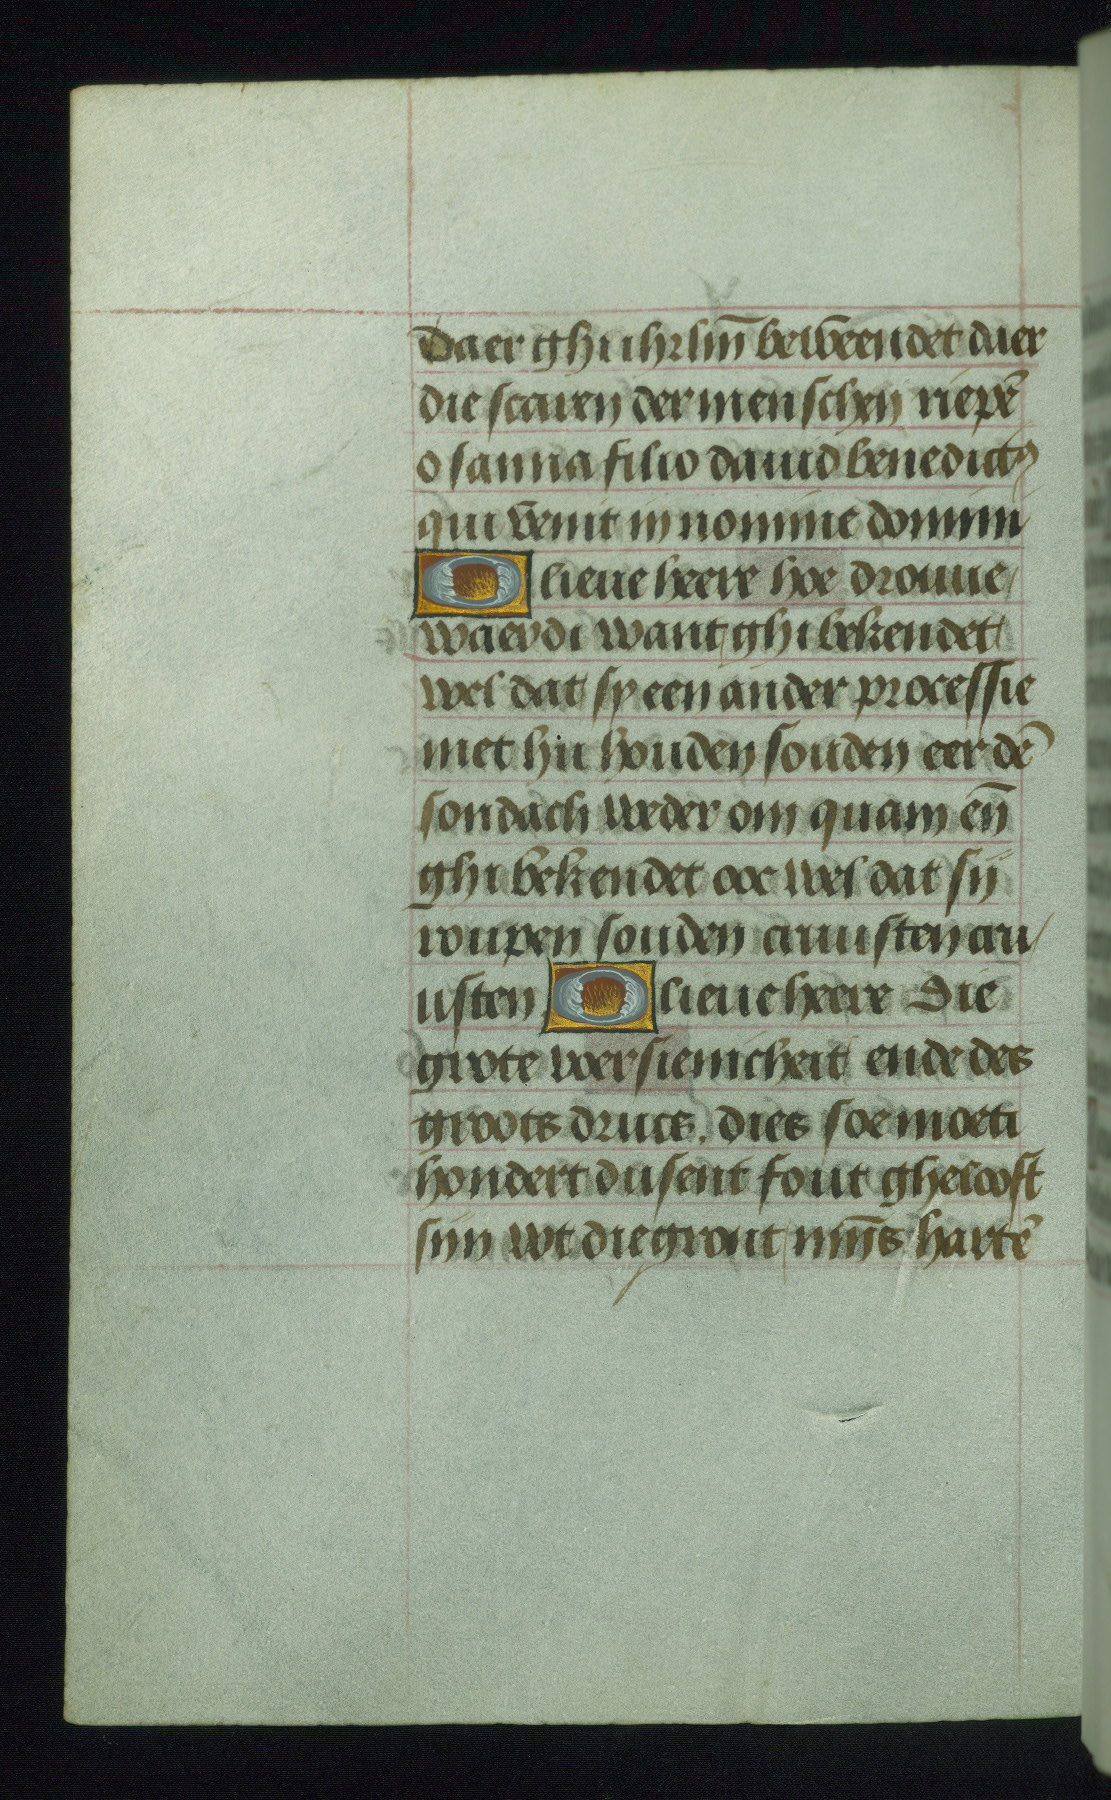 Daer ghi ihrlm̄ beweendet daer
die scaren der menschen riepē
osanna filio dauid benedictꝰ
qui venit in nomine domini
O lieue heere hoe drouue
waerdi want ghi bekendet
wel dat sy een ander processie
met hu houden souden eer dē
sondach weder om quam eñ
ghi bekendet ooc wel dat sij
roupen souden cruusten cru
usten O lieue heere Die
grote voersienicheit ende des
groots drucs. dies soe moeti
hondert dusent fout ghelooft
sijn wt die gront mijs̄ hartē